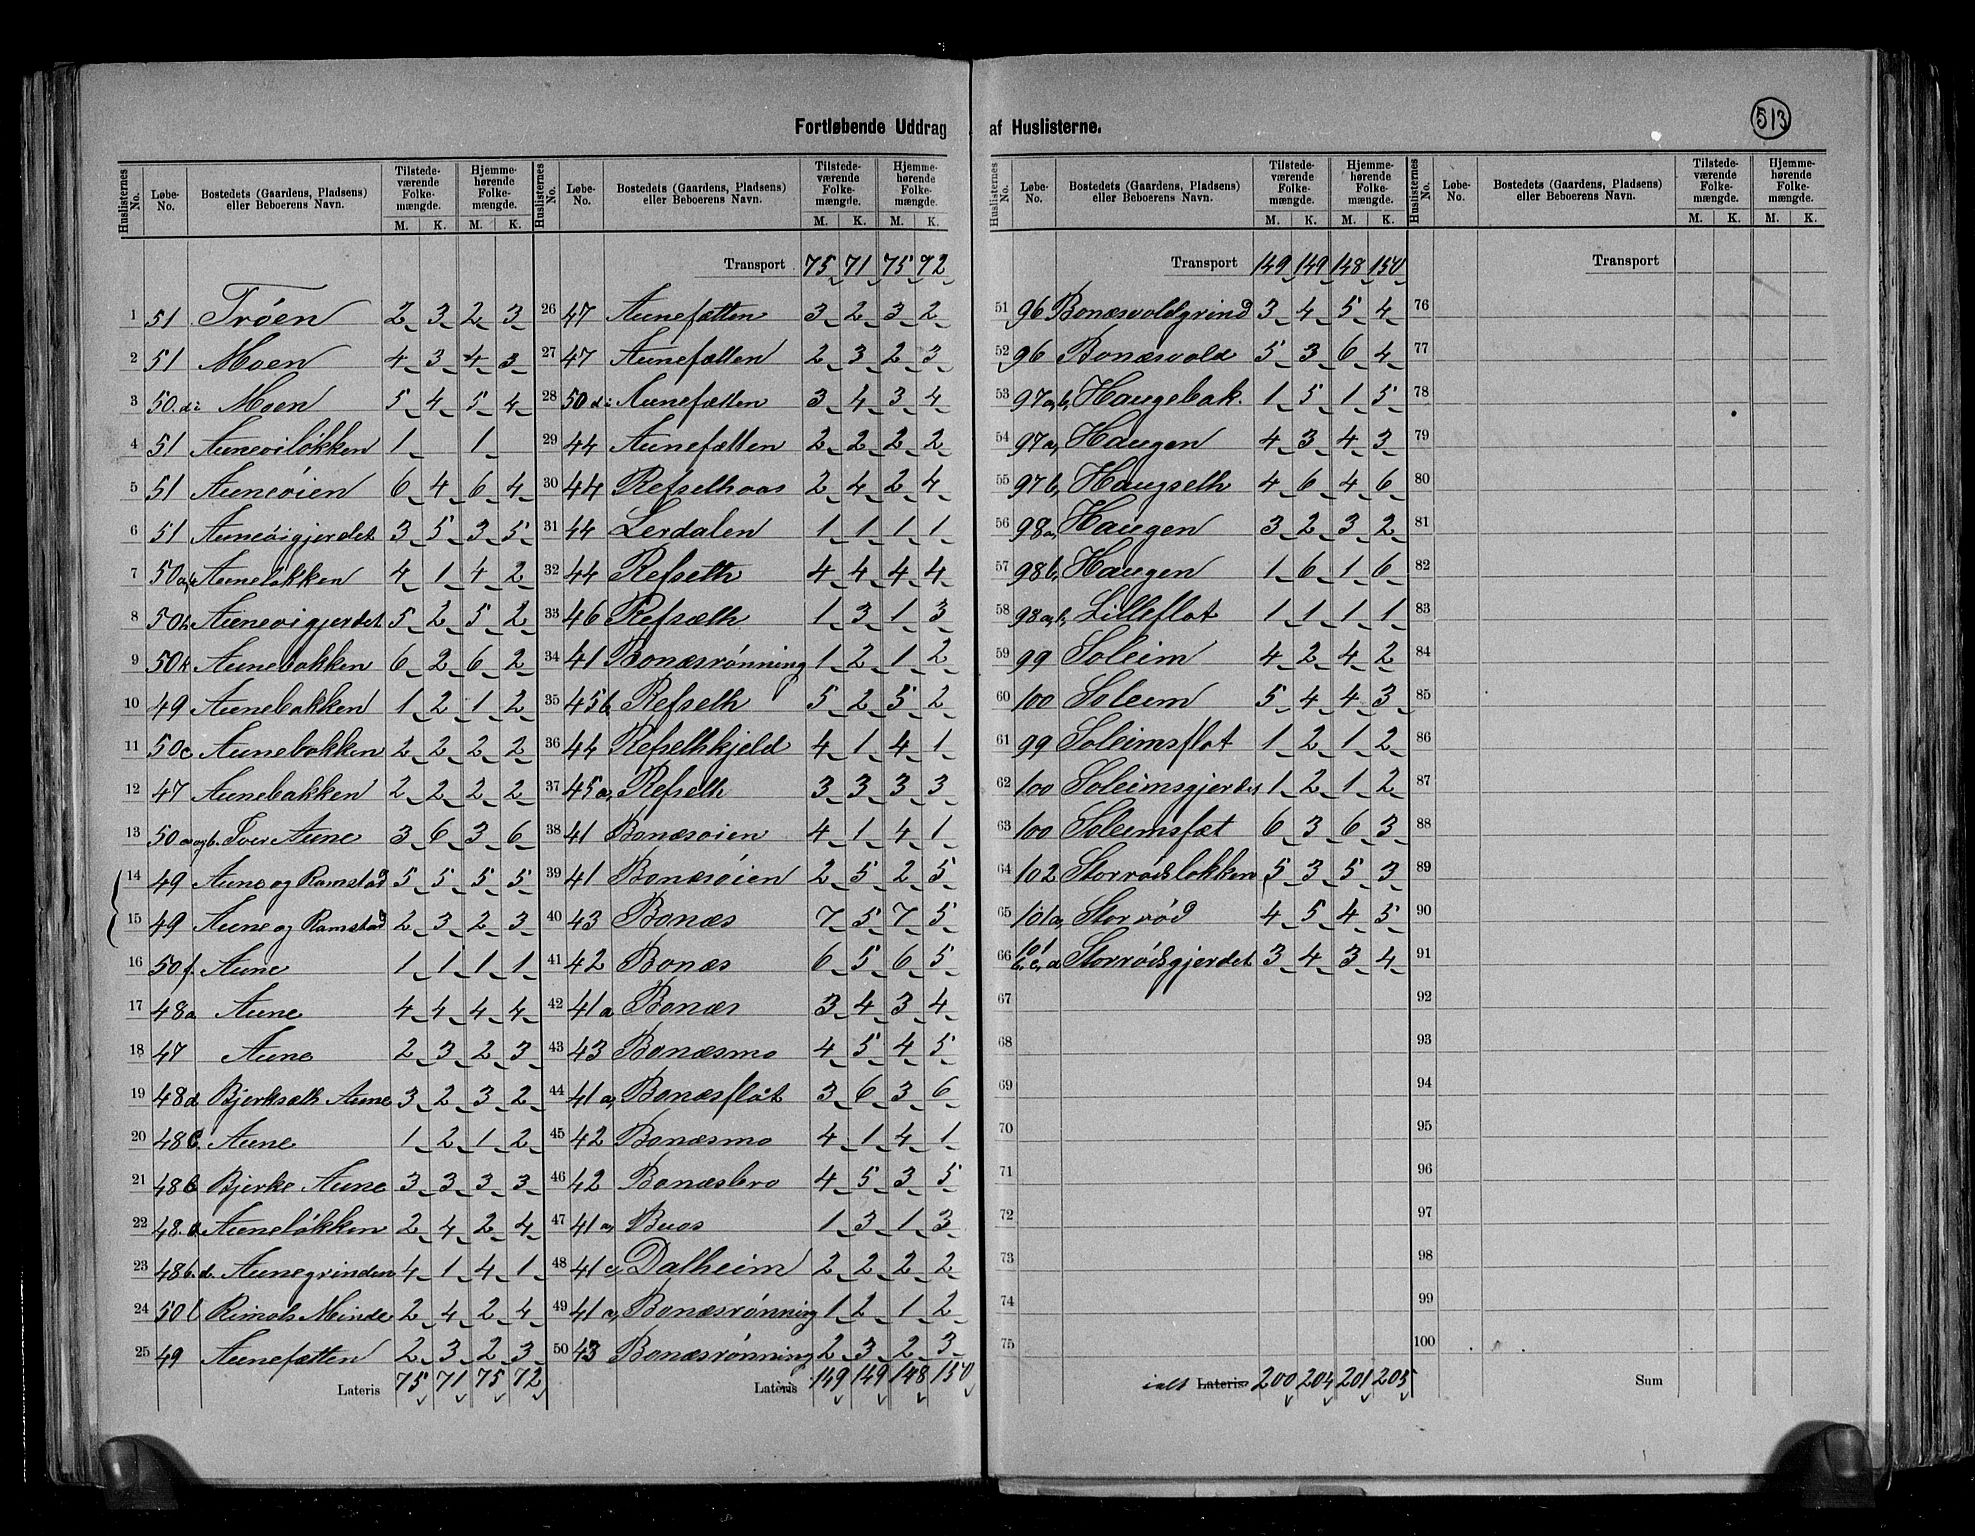 Fortløbende Uddrag af Huslisterne.
513
Huslisternes No. Løbe-No. Bostedets (Gaardens, Pladsens) eller Beboerens Navn. Tilstedeværende Folkemængde. M. K. Hjemmehørende Folkemængde. M. K.
1 51 Trøen 2 3 2 3
2 51 Moen 4 3 4 3
3 50 di Moen 5 4 5 4
4 51 Auneviløkken 1 1
5 51 Auneøien 6 4 6 4
6 51 Auneøigjerdet 3 5 3 5
7 50 Auneløkken 4 1 4 2
8 50h Aunevigjerdet 5 2 5 2
9 50k Aunebakken 6 2 6 2
10 49 Aunebakken 1 2 1 2
11 50c Aunebakken 2 2 2 2
12 47 Aunebakken 2 2 2 2
13 50 a og b. Tver Aune 3 6 3 6
14 49 Aune og Ramstad 5 5 5 5
15 49 Aune og Ramstad 2 3 2 3
16 50f. Aune 1 1 1 1
17 48a Aune 4 4 4 4
18 47 Aune 2 3 2 3
19 48d Bjerksæth Aune 3 2 3 2
20 48 Aune 1 2 1 2
21 48b Bjerke Aune 3 3 3 3
22 48. Auneløkken 2 4 2 4
23 48b.d. Aunegrinden 4 1 4 1
24 50l Rimols Minde 2 4 2 4
25 49 Aunefætten 2 3 2 3
Lateris 75 71 75 72
Huslisternes No. Løbe-No. Bostedets (Gaardens, Pladsens) eller Beboerens Navn. Tilstedeværende Folkemængde. M. K. Hjemmehørende Folkemængde. M. K.
Transport 75 71 75 72
26 47 Aunefætten 3 2 3 2
27 47 Aunefætten 2 3 2 3
28 50 di Aunefætten 3 4 3 4
29 44 Aunefætten 2 2 2 2
30 44 Refselhaas 2 4 2 4
31 44 Lerdalen 1 1 1 1
32 44 Refseth 4 4 4 4
33 46 Refsælh 1 3 1 3
34 41 Bonæsrønning 1 2 1 2
35 45b Refselh 5 2 5 2
36 44 Refselhkjeld 4 1 4 1
37 45a, Refselh 3 3 3 3
38 41 Bonæsøien 4 1 4 1
39 41 Bonæsøien 2 5 2 5
40 43 Bonæs 7 5 7 5
41 42 Bonæs 6 5 6 5
42 41a Bonæs 3 4 3 4
43 43 Bonæsmo 4 5 4 5
44 41a, Bonæsfløt 3 6 3 6
45 42 Bonæsmo 4 1 4 1
46 42 Bonæsbro 4 5 3 5
47 41a, Buas 1 3 1 3
48 41 Dalheim 2 2 2 2
49 41a, Bonæsrønning 1 2 1 2
50 43 Bonæsrønning 2 3 2 3
Lateris 149 149 148 150
Huslisternes No. Løbe-No. Bostedets (Gaardens, Pladsens) eller Beboerens Navn. Tilstedeværende Folkemængde. M. K. Hjemmehørende Folkemængde. M. K.
Transport 149 149 148 150
51 96 Bonæsvoldgrind 3 4 5 4
52 96 Bonæsvold 5 3 6 4
53 97a,b, Haugebak. 1 5 1 5
54 97a, Haugen 4 3 4 3
55 97b, Haugselh 4 6 4 6
56 98a, Haugen 3 2 3 2
57 98b, Haugen 1 6 1 6
58 98a,b, Lilleflot 1 1 1 1
59 99 Soleim 4 2 4 2
60 100 Soleim 5 4 4 3
61 99 Soleimsflot 1 2 1 2
62 100 Soleimsgjerdet 1 2 1 2
63 100 Soleimsfæt 6 3 6 3
64 102 Storrødsløkken 5 3 5 3
65 101a, Storrød 4 5 4 5
66 101 b, c, d Storrødsgjerdet 3 4 3 4
67
68
69
70
71
72
73
74
75
ialt Lateris 200 204 201 205
Huslisternes No. Løbe-No. Bostedets (Gaardens, Pladsens) eller Beboerens Navn. Tilstedeværende Folkemængde. M. K. Hjemmehørende Folkemængde. M. K.
Transport
76
77
78
79
80
81
82
83
84
85
86
87
88
89
90
91
92
93
94
95
96
97
98
99
100
Sum